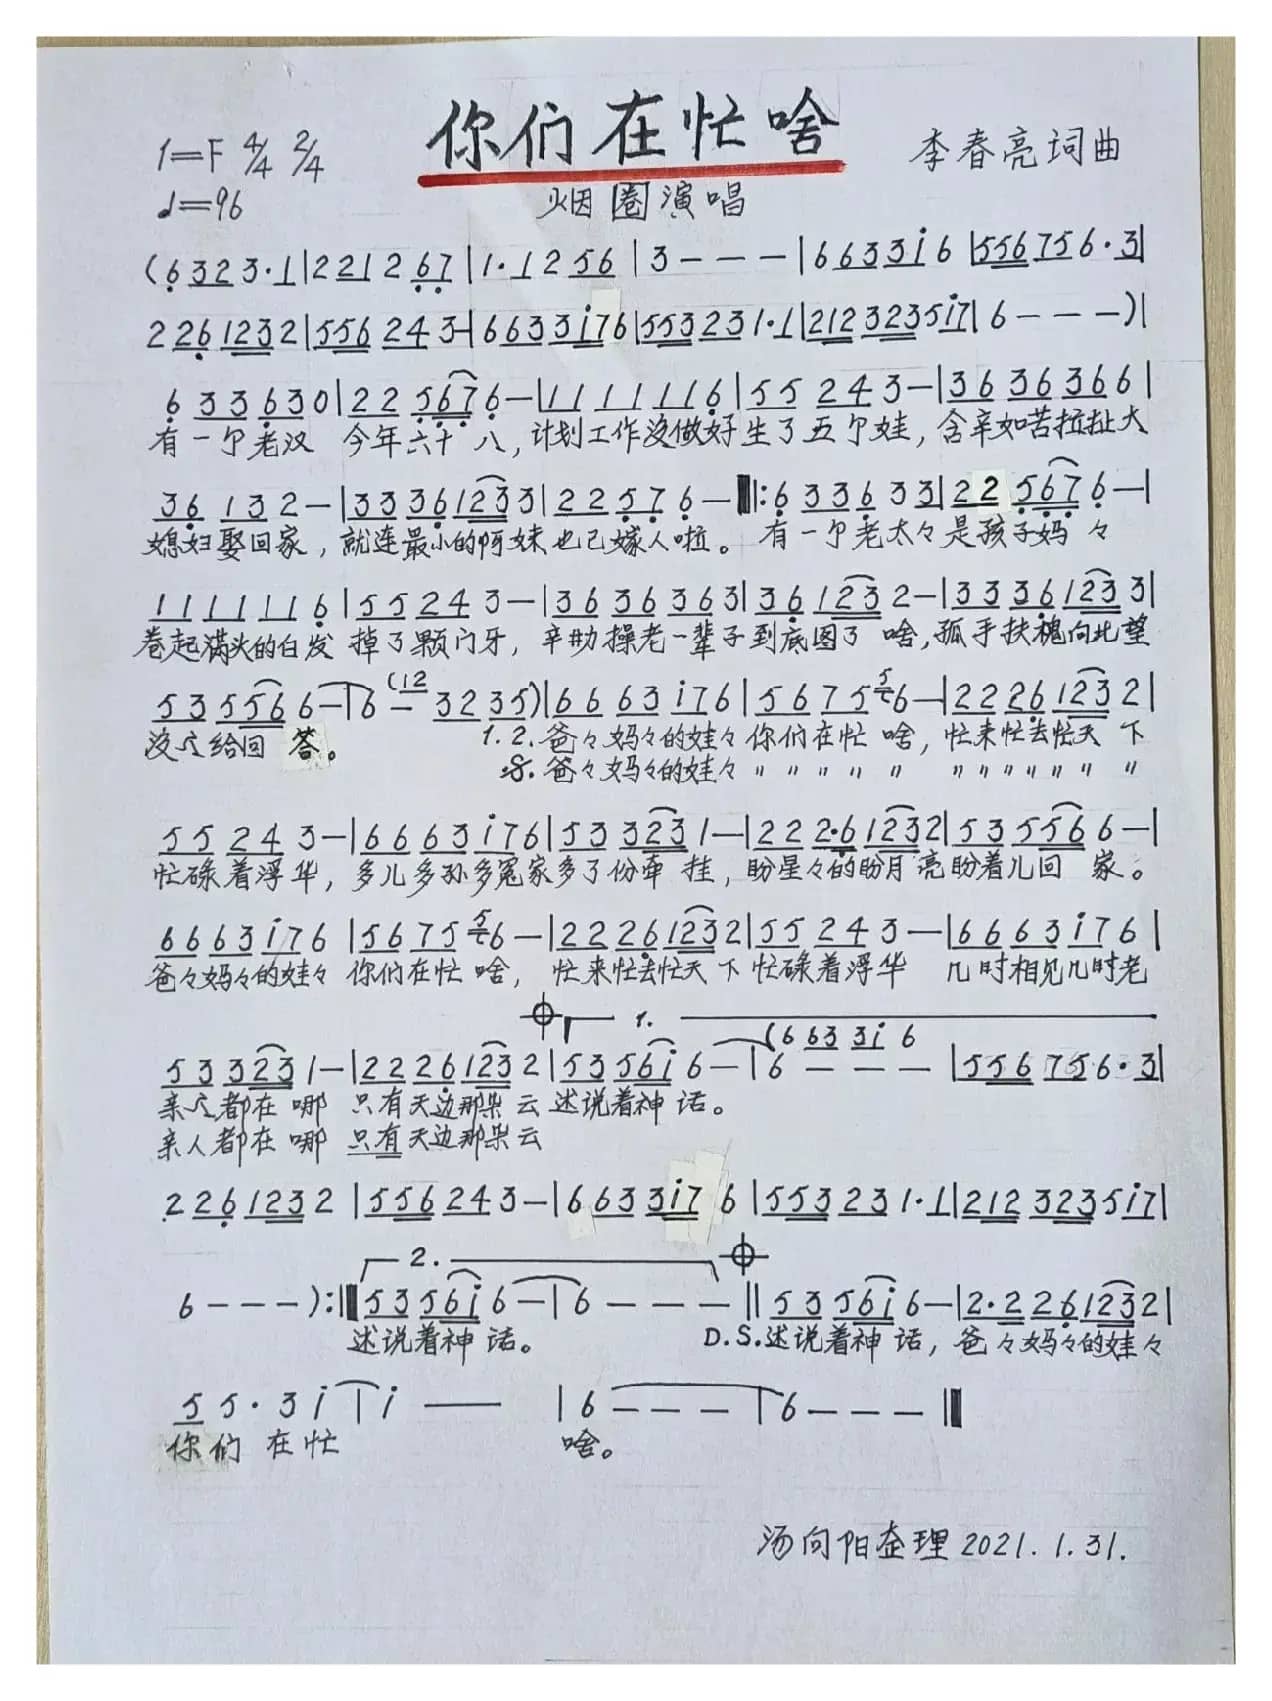 你们在忙啥
1=F 4/4 2/4
李春亮词曲
♩=96
烟圈演唱
(6 3 2 3·1|2 2 1 2 6 7|1·1 2 5 6|3 - - -|6 6 3 3 i 6|5 5 6 7 5 6·3|
2 2 6 1 2 3 2|5 5 6 2 4 3-|6 6 3 3 i 7 6|5 5 3 2 3 1·1|2 1 2 3 2 3 5 i 7|6 - - -)|
6 3 3 6 3 0|2 2 5 6 7 6-|1 1 1 1 1 1 6|5 5 2 4 3-|3 6 3 6 3 6 6|
有一个老汉 今年六十八,计划工作没做好生了五个娃,含辛如苦拉扯大
3 6 1 3 2-|3 3 3 6 1 2 3 3|2 2 5 7 6-‖:6 3 3 6 3 3|2 2 5 6 7 6-|
媳妇娶回家,就连最小的阿妹也已嫁人啦。 有一个老太々是孩子妈々
1 1 1 1 1 1 6|5 5 2 4 3-|3 6 3 6 3 6 3|3 6 1 2 3 2-|3 3 3 6 1 2 3 3|
卷起满头的白发 掉了颗门牙,辛勤操老一辈子到底图了啥,孤手扶槐向北望
5 3 5 5 6 6-|6 (1 2 - 3 2 3 5)|6 6 6 3 i 7 6|5 6 7 5 5 6-|2 2 2 6 1 2 3 2|
没人给回答。 1.2.爸々妈々的娃々 你们在忙啥,忙来忙去忙天下
𝄋.爸々妈々的娃々 〃〃〃〃〃 〃〃〃〃〃〃〃
5 5 2 4 3-|6 6 6 3 i 7 6|5 3 3 2 3 1-|2 2 2·6 1 2 3 2|5 3 5 5 6 6-|
忙碌着浮华,多儿多孙多冤家多了份牵挂,盼星々的盼月亮盼着儿回家。
6 6 6 3 i 7 6|5 6 7 5 5 6-|2 2 2 6 1 2 3 2|5 5 2 4 3-|6 6 6 3 i 7 6|
爸々妈々的娃々 你们在忙啥,忙来忙去忙天下 忙碌着浮华 几时相见几时老
1.
(6 6 3 3 i 6
5 3 3 2 3 1-|2 2 2 6 1 2 3 2|5 3 5 6 i 6-|6 - - -|5 5 6 7 5 6·3|
亲人都在哪 只有天边那朵云 述说着神话。
亲人都在哪 只有天边那朵云
2 2 6 1 2 3 2|5 5 6 2 4 3-|6 6 3 3 i 7 6|5 5 3 2 3 1·1|2 1 2 3 2 3 5 i 7|
2.
6 - - -):‖5 3 5 6 i 6-|6 - - -‖5 3 5 6 i 6-|2·2 2 6 1 2 3 2|
述说着神话。 D.S.述说着神话,爸々妈々的娃々
5 5·3 i|i — —|6 - - -|6 - - -‖
你们在忙 啥。
汤向阳整理 2021.1.31.